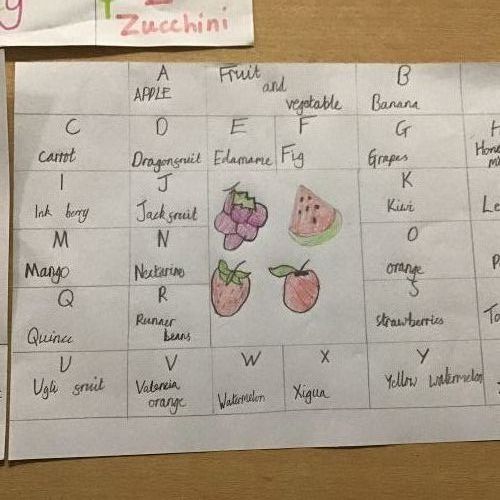 y
Zucchini
A
APPLE
Fruit
and
vegetable
B
Banana
C
Carrot
D
Dragonfruit
E
Edamame
F
Fig
G
Grapes
H
I
Ink berry
J
Jackfruit
K
Kiwi
Le
M
Mango
N
Nectarine
O
orange
Q
Quince
R
Runner
beans
S
strawberries
To
U
Ugli fruit
V
Valencia
orange
W
Watermelon
X
Xigua
Y
Yellow watermelon